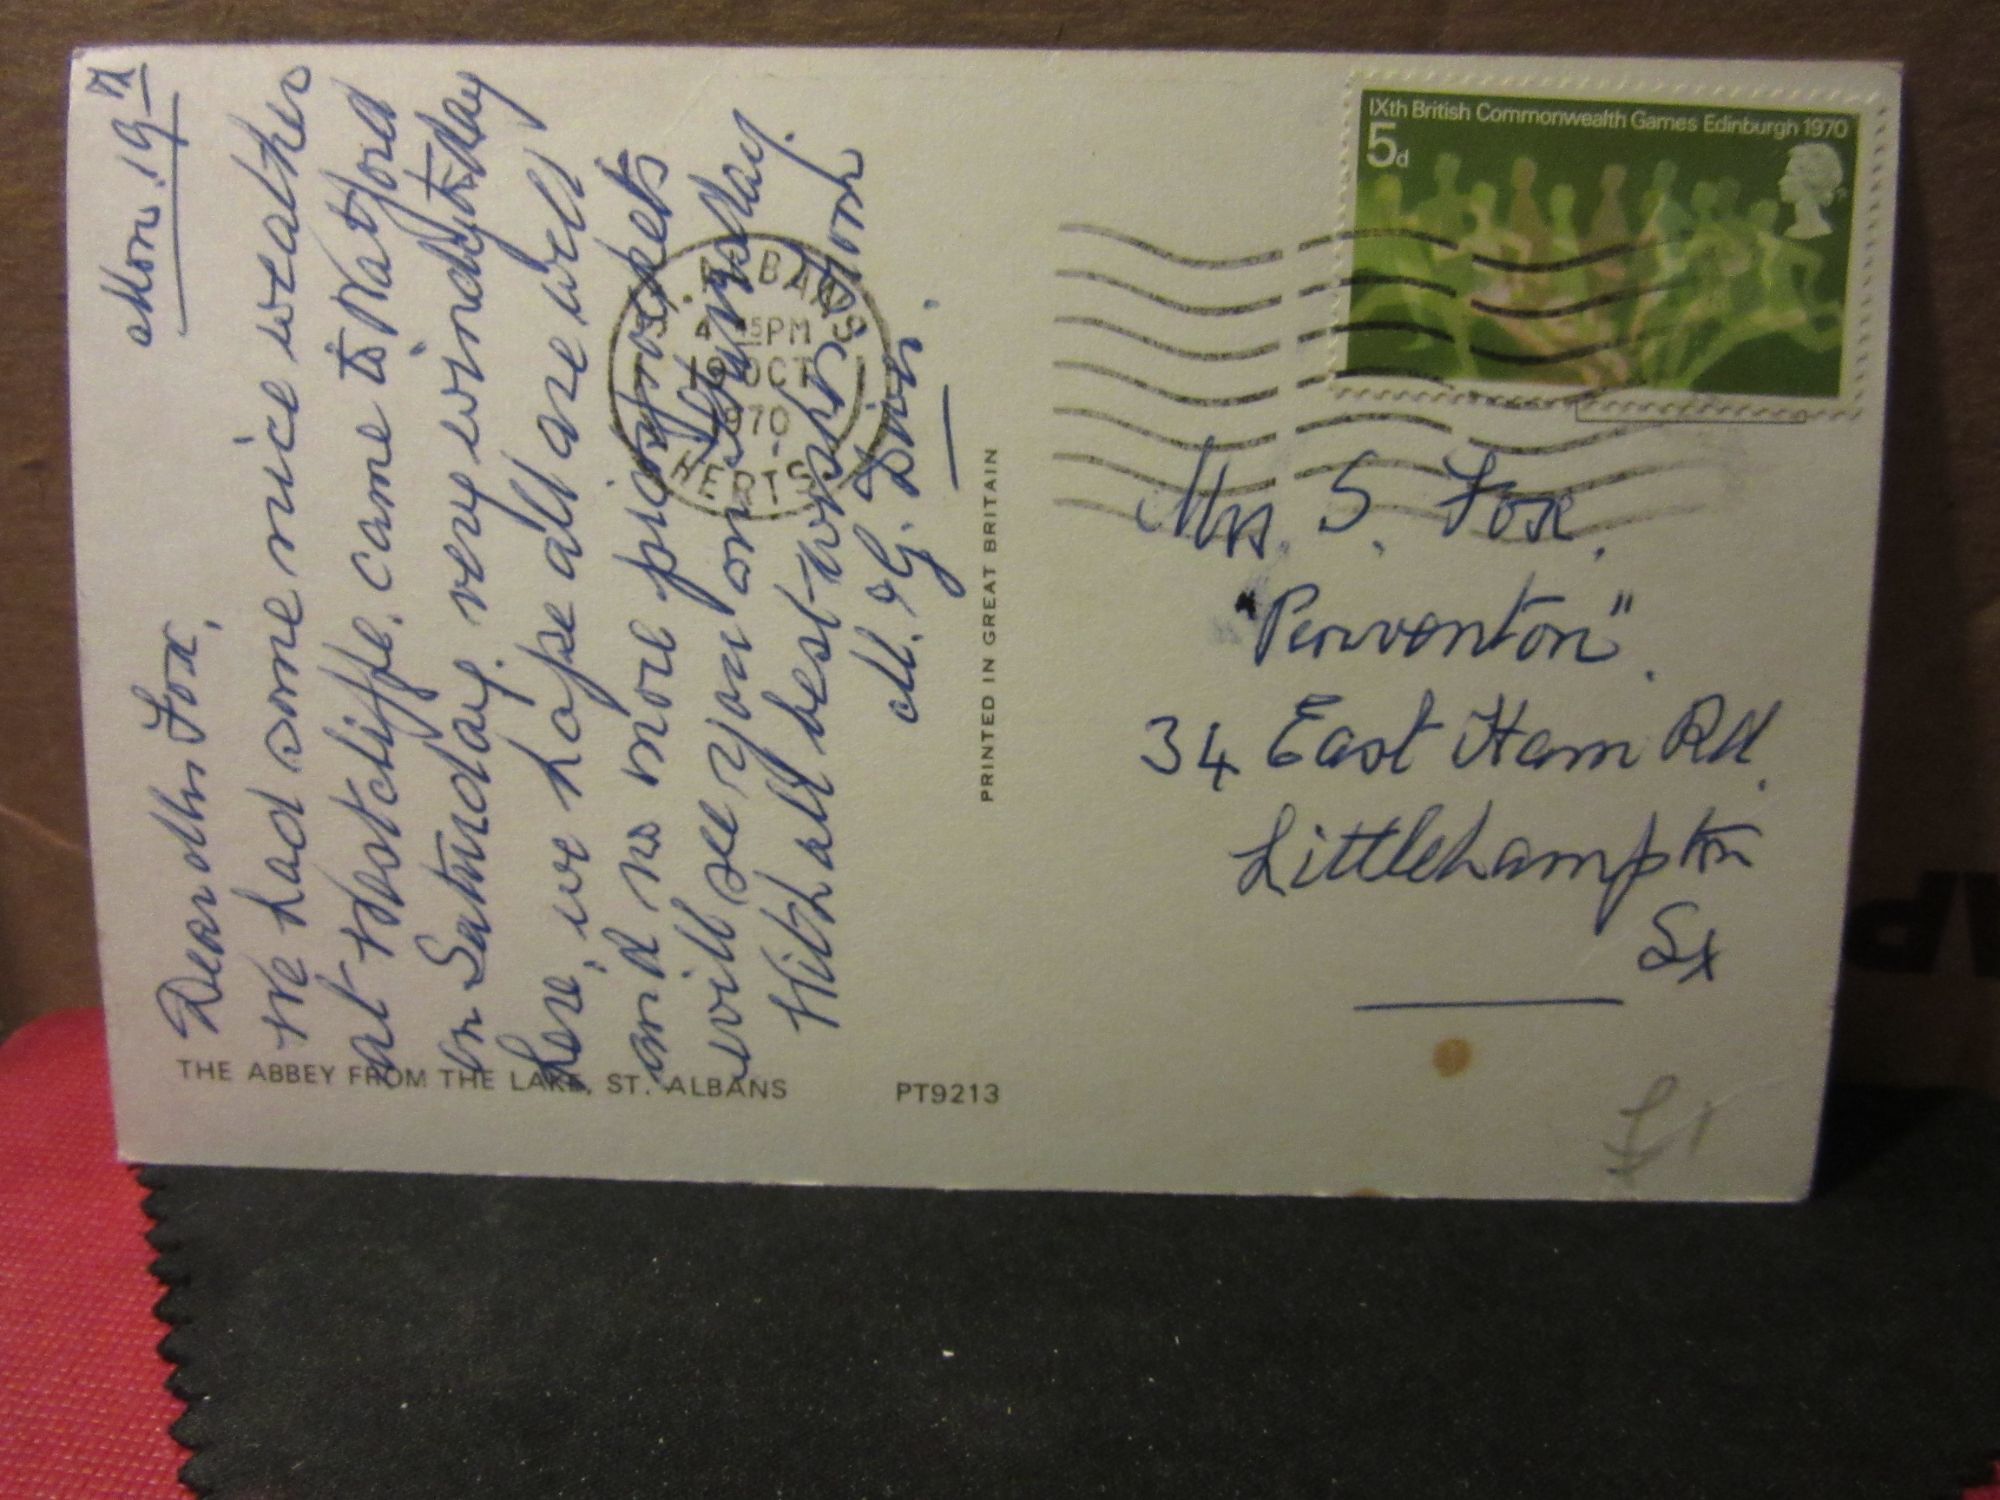 Mon. 19th
Dear Mrs Fox,
We had some nice weather
at Westcliffe. came to Watford
on Saturday. very windy today
here, we hope all are well
and no more prospects
will see you on Thursday.
With all best wishes from
M. & G.
THE ABBEY FROM THE LAKE, ST. ALBANS
PT9213
PRINTED IN GREAT BRITAIN
ST. ALBANS
4 45PM
19 OCT
1970
HERTS
IXth British Commonwealth Games Edinburgh 1970
5d
Mrs. S. Fox.
34 East Ham Rd.
Littlehampton
Sx
£1